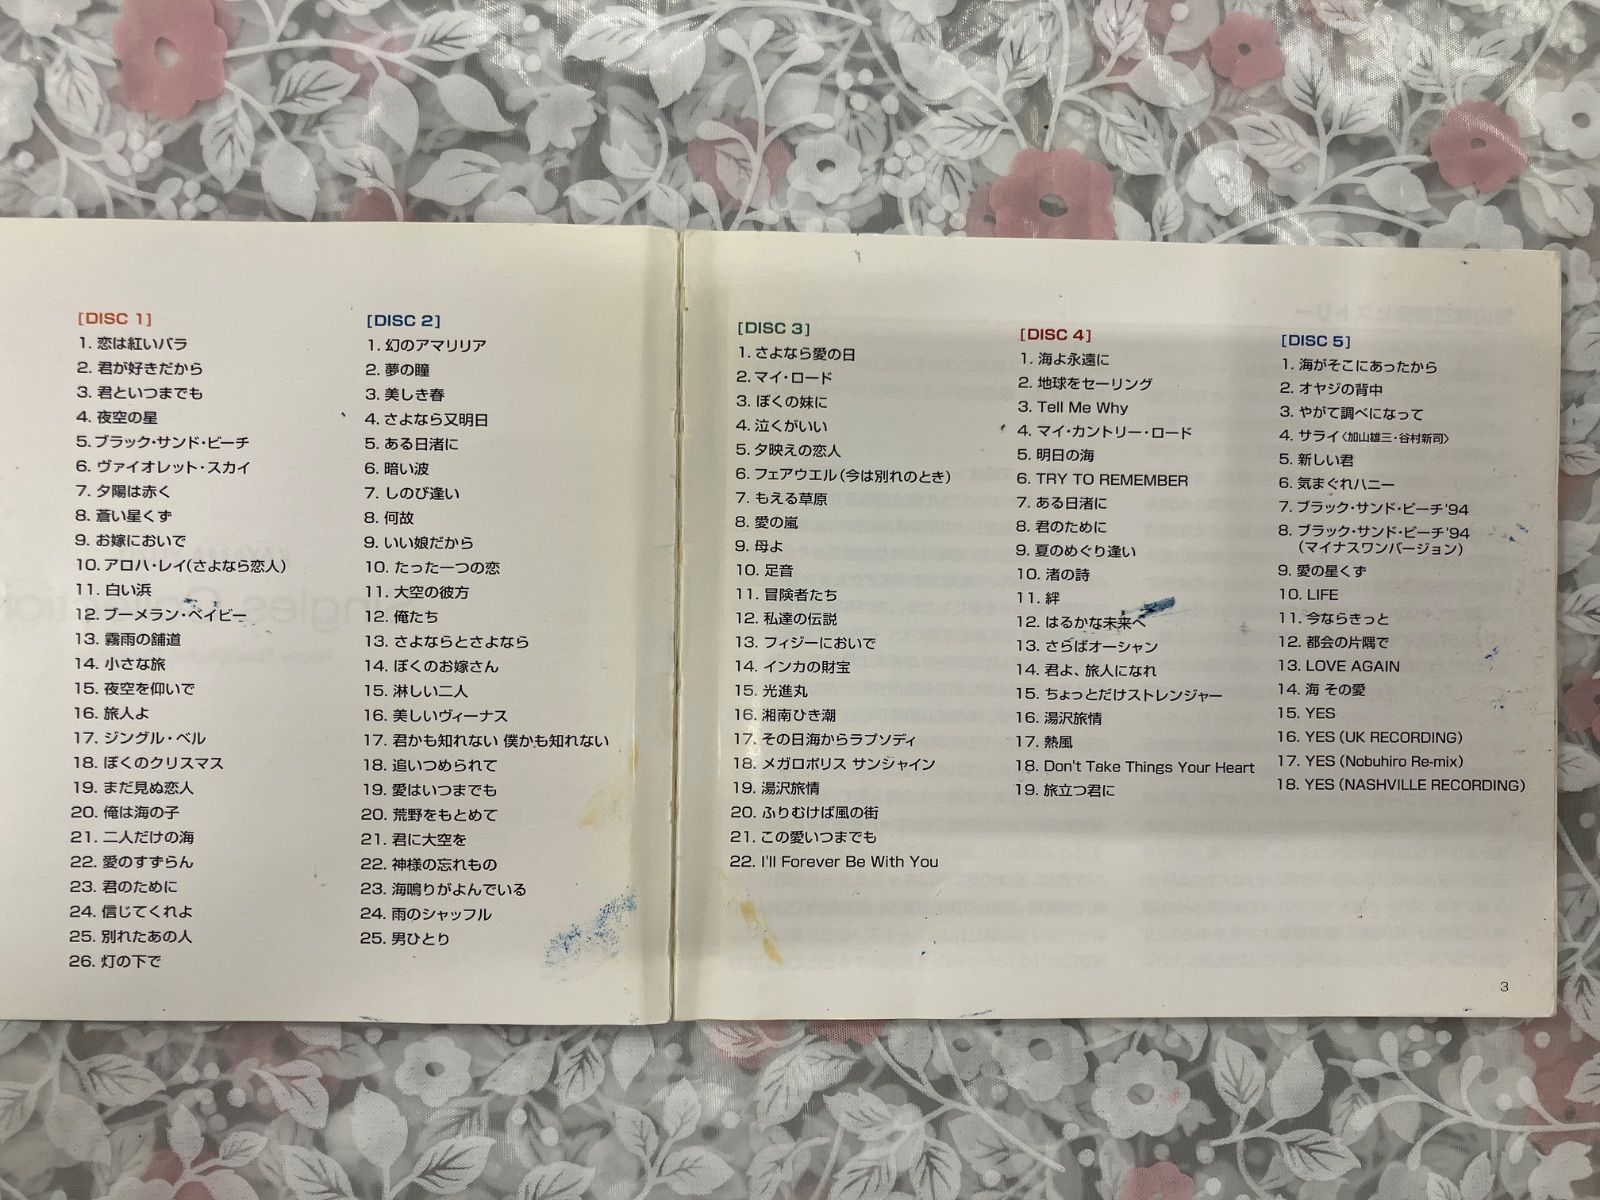 [DISC 1]
1. 恋は紅いバラ
2. 君が好きだから
3. 君といつまでも
4. 夜空の星
5. ブラック・サンド・ビーチ
6. ヴァイオレット・スカイ
7. 夕陽は赤く
8. 蒼い星くず
9. お嫁においで
10. アロハ・レイ(さよなら恋人)
11. 白い浜
12. ブーメラン・ベイビー
13. 霧雨の舗道
14. 小さな旅
15. 夜空を仰いで
16. 旅人よ
17. ジングル・ベル
18. ぼくのクリスマス
19. まだ見ぬ恋人
20. 俺は海の子
21. 二人だけの海
22. 愛のすずらん
23. 君のために
24. 信じてくれよ
25. 別れたあの人
26. 灯の下で
[DISC 2]
1. 幻のアマリリア
2. 夢の瞳
3. 美しき春
4. さよなら又明日
5. ある日渚に
6. 暗い波
7. しのび逢い
8. 何故
9. いい娘だから
10. たった一つの恋
11. 大空の彼方
12. 俺たち
13. さよならとさよなら
14. ぼくのお嫁さん
15. 淋しい二人
16. 美しいヴィーナス
17. 君かも知れない 僕かも知れない
18. 追いつめられて
19. 愛はいつまでも
20. 荒野をもとめて
21. 君に大空を
22. 神様の忘れもの
23. 海鳴りがよんでいる
24. 雨のシャッフル
25. 男ひとり
[DISC 3]
1. さよなら愛の日
2. マイ・ロード
3. ぼくの妹に
4. 泣くがいい
5. 夕映えの恋人
6. フェアウエル(今は別れのとき)
7. もえる草原
8. 愛の嵐
9. 母よ
10. 足音
11. 冒険者たち
12. 私達の伝説
13. フィジーにおいで
14. インカの財宝
15. 光進丸
16. 湘南ひき潮
17. その日海からラプソディ
18. メガロポリス サンシャイン
19. 湯沢旅情
20. ふりむけば風の街
21. この愛いつまでも
22. I'll Forever Be With You
[DISC 4]
1. 海よ永遠に
2. 地球をセーリング
3. Tell Me Why
4. マイ・カントリー・ロード
5. 明日の海
6. TRY TO REMEMBER
7. ある日渚に
8. 君のために
9. 夏のめぐり逢い
10. 渚の詩
11. 絆
12. はるかな未来へ
13. さらばオーシャン
14. 君よ、旅人になれ
15. ちょっとだけストレンジャー
16. 湯沢旅情
17. 熱風
18. Don't Take Things Your Heart
19. 旅立つ君に
[DISC 5]
1. 海がそこにあったから
2. オヤジの背中
3. やがて調べになって
4. サライ〈加山雄三・谷村新司〉
5. 新しい君
6. 気まぐれハニー
7. ブラック・サンド・ビーチ'94
8. ブラック・サンド・ビーチ'94
(マイナスワンバージョン)
9. 愛の星くず
10. LIFE
11. 今ならきっと
12. 都会の片隅で
13. LOVE AGAIN
14. 海 その愛
15. YES
16. YES (UK RECORDING)
17. YES (Nobuhiro Re-mix)
18. YES (NASHVILLE RECORDING)
3